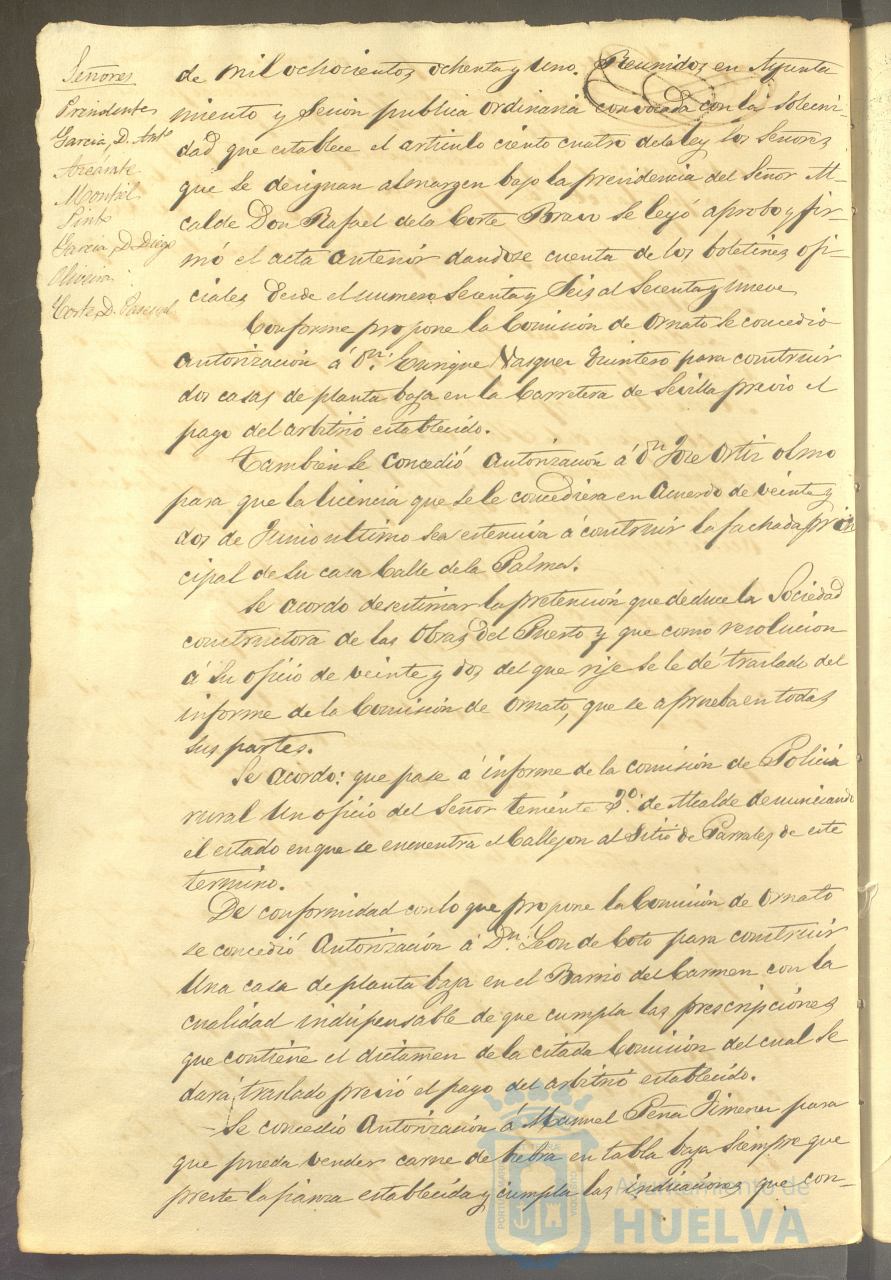 Señores
Presidente
Garcia, D. Antº
Azcárate
Montiel
Pinto
Garcia, D. Diego
Oliveira
Corte, D. Pascual
de mil ochocientos ochenta y uno. Reunidos en Ayunta
miento y Sesion publica ordinaria convocada con la solemni
dad que establece el articulo ciento cuatro de la ley los Señores
que se designan al margen bajo la presidencia del Señor Al-
calde Don Rafael de la Corte Bravo se leyó aprobo y fir-
mó el acta anterior dandose cuenta de los boletines ofi-
ciales desde el numero sesenta y seis al sesenta y nueve
Conforme propone la Comisión de Ornato se concedio
autorización á Dn. Enrique Vasquez Quintero para construir
dos casas de planta baja en la Carretera de Sevilla previo el
pago del arbitrio establecido.
Tambien se concedió autorización á Dn Jose Ortiz olmo
para que la licencia que se le concediera en acuerdo de veinte y
dos de Junio ultimo sea estensiva á construir la fachada prin
cipal de su casa Calle de la Palma.
Se acordo desestimar la pretención que deduce la Sociedad
constructora de las Obras del Puerto y que como resolucion
á su oficio de veinte y dos del que rije se le dé traslado del
informe de la Comisión de Ornato, que se aprueba en todas
sus partes.
Se acordo: que pase á informe de la comisión de Policia
rural un oficio del Señor teniente 2º. de Alcalde denunciando
el estado en que se encuentra el Callejon al Sitio de Parrales de este
termino.
De conformidad con lo que propone la Comisión de Ornato
se concedió autorización á Dn. Leon de Coto para construir
una casa de planta baja en el Barrio del Carmen con la
cualidad indispensable de que cumpla las prescripciones
que contiene el dictamen de la citada Comisión del cual se
dará traslado previó el pago del arbitrio establecido.
Se concedió autorización á Manuel Peña Jimenez para
que pueda vender carne de hebra en tabla baja siempre que
preste la fianza establecida y cumpla las indicaciones que con-
Ayuntamiento de
HUELVA